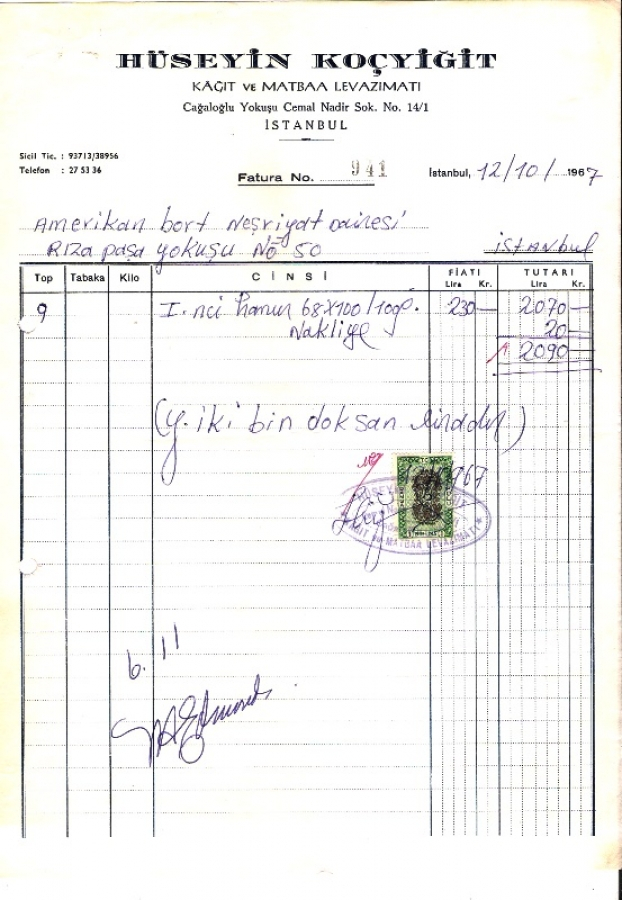 HÜSEYİN KOÇYİĞİT
KÂĞIT VE MATBAA LEVAZIMATI
Cağaloğlu Yokuşu Cemal Nadir Sok. No. 14/1
İSTANBUL
Sicil Tic. : 93713/38956
Telefon : 27 53 36
Fatura No. 941
İstanbul, 12/10/1967
Amerikan bort Neşriyat Dairesi
Rıza paşa yokuşu No 50
İstanbul
Top Tabaka Kilo CİNSİ FİATI Lira Kr. TUTARI Lira Kr.
9 I. nci Hamur 68X100/100g. 230— 2070—
Nakliye 20—
2090—
(Y. iki bin doksan liradır)
6. 11